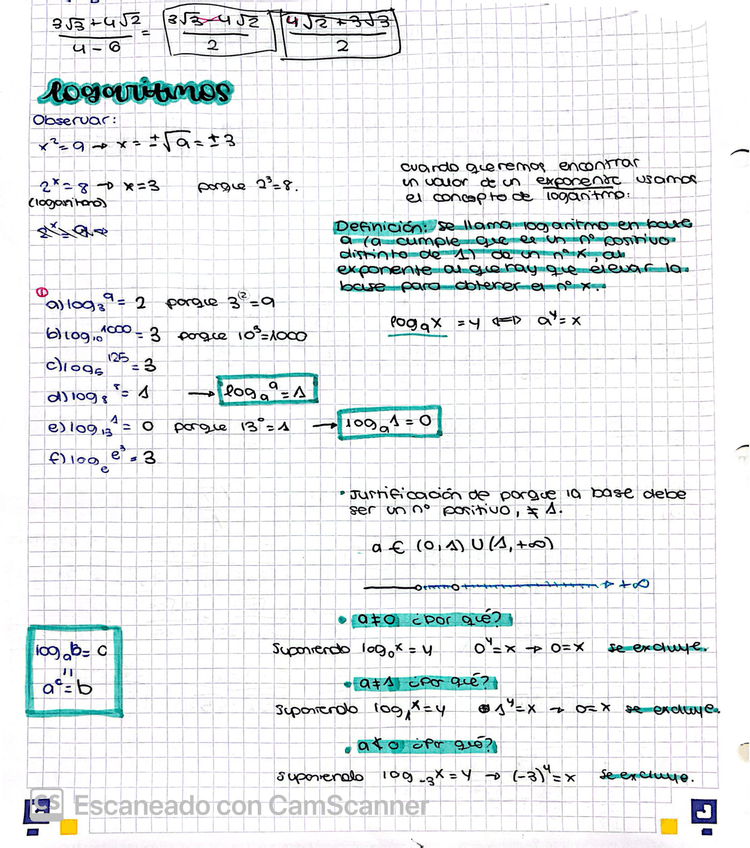 3√3+4√2 / 4-6 = 3√3-4√2 / 2 4√2+3√3 / 2
logaritmos
Observar:
x²=9 → x=±√9=±3
2ˣ=8 → x=3 porque 2³=8.
(logaritmo)
cuando queremos encontrar
un valor de un exponente usamos
el concepto de logaritmo.
Definición: se llama logaritmo en base
a (a cumple que es un nº positivo
distinto de 1) de un nº x, al
exponente al que hay que elevar la
base para obtener el nº x.
logₐx = y ⟺ aʸ=x
①
a) log₃9 = 2 porque 3²=9
b) log₁₀1000 = 3 porque 10³=1000
c) log₅125 = 3
d) log₈8 = 1 → logₐa = 1
e) log₁₃1 = 0 porque 13⁰=1 → logₐ1 = 0
f) logₑe³ = 3
• Justificación de porque la base debe
ser un nº positivo, ≠ 1.
a ∈ (0,1) ∪ (1,+∞)
+∞
• a≠0 ¿por qué?
Suponiendo log₀x = y 0ʸ=x → 0=x se excluye.
• a≠1 ¿por qué?
Suponiendo log₁x = y 1ʸ=x → 0=x se excluye.
• a≮0 ¿por qué?
suponiendo log₋₃x = y → (-3)ʸ=x se excluye.
logₐb = c
"
aᶜ=b
CS Escaneado con CamScanner